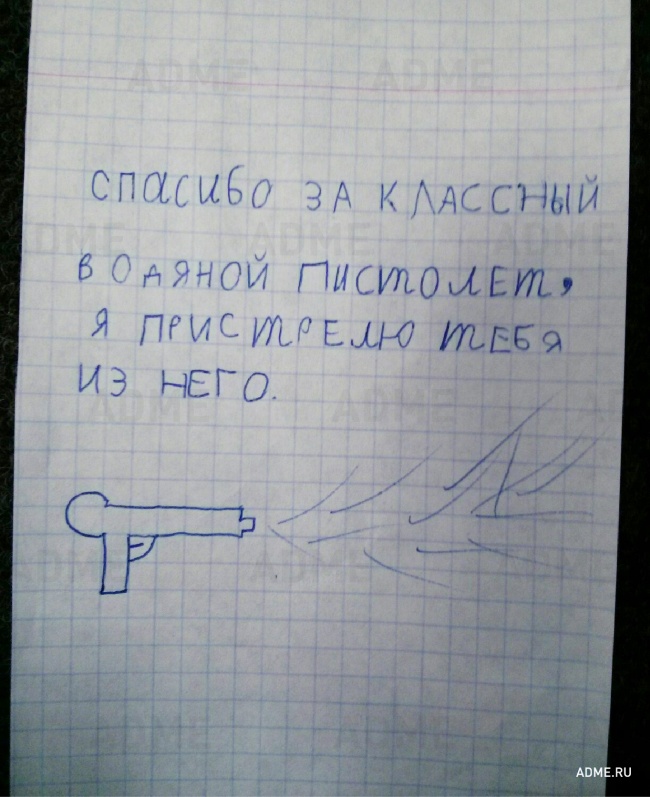 СПАСИБО ЗА КЛАССНЫЙ
ВОДЯНОЙ ПИСТОЛЕТ,
Я ПРИСТРЕЛЮ ТЕБЯ
ИЗ НЕГО.
ADME.RU